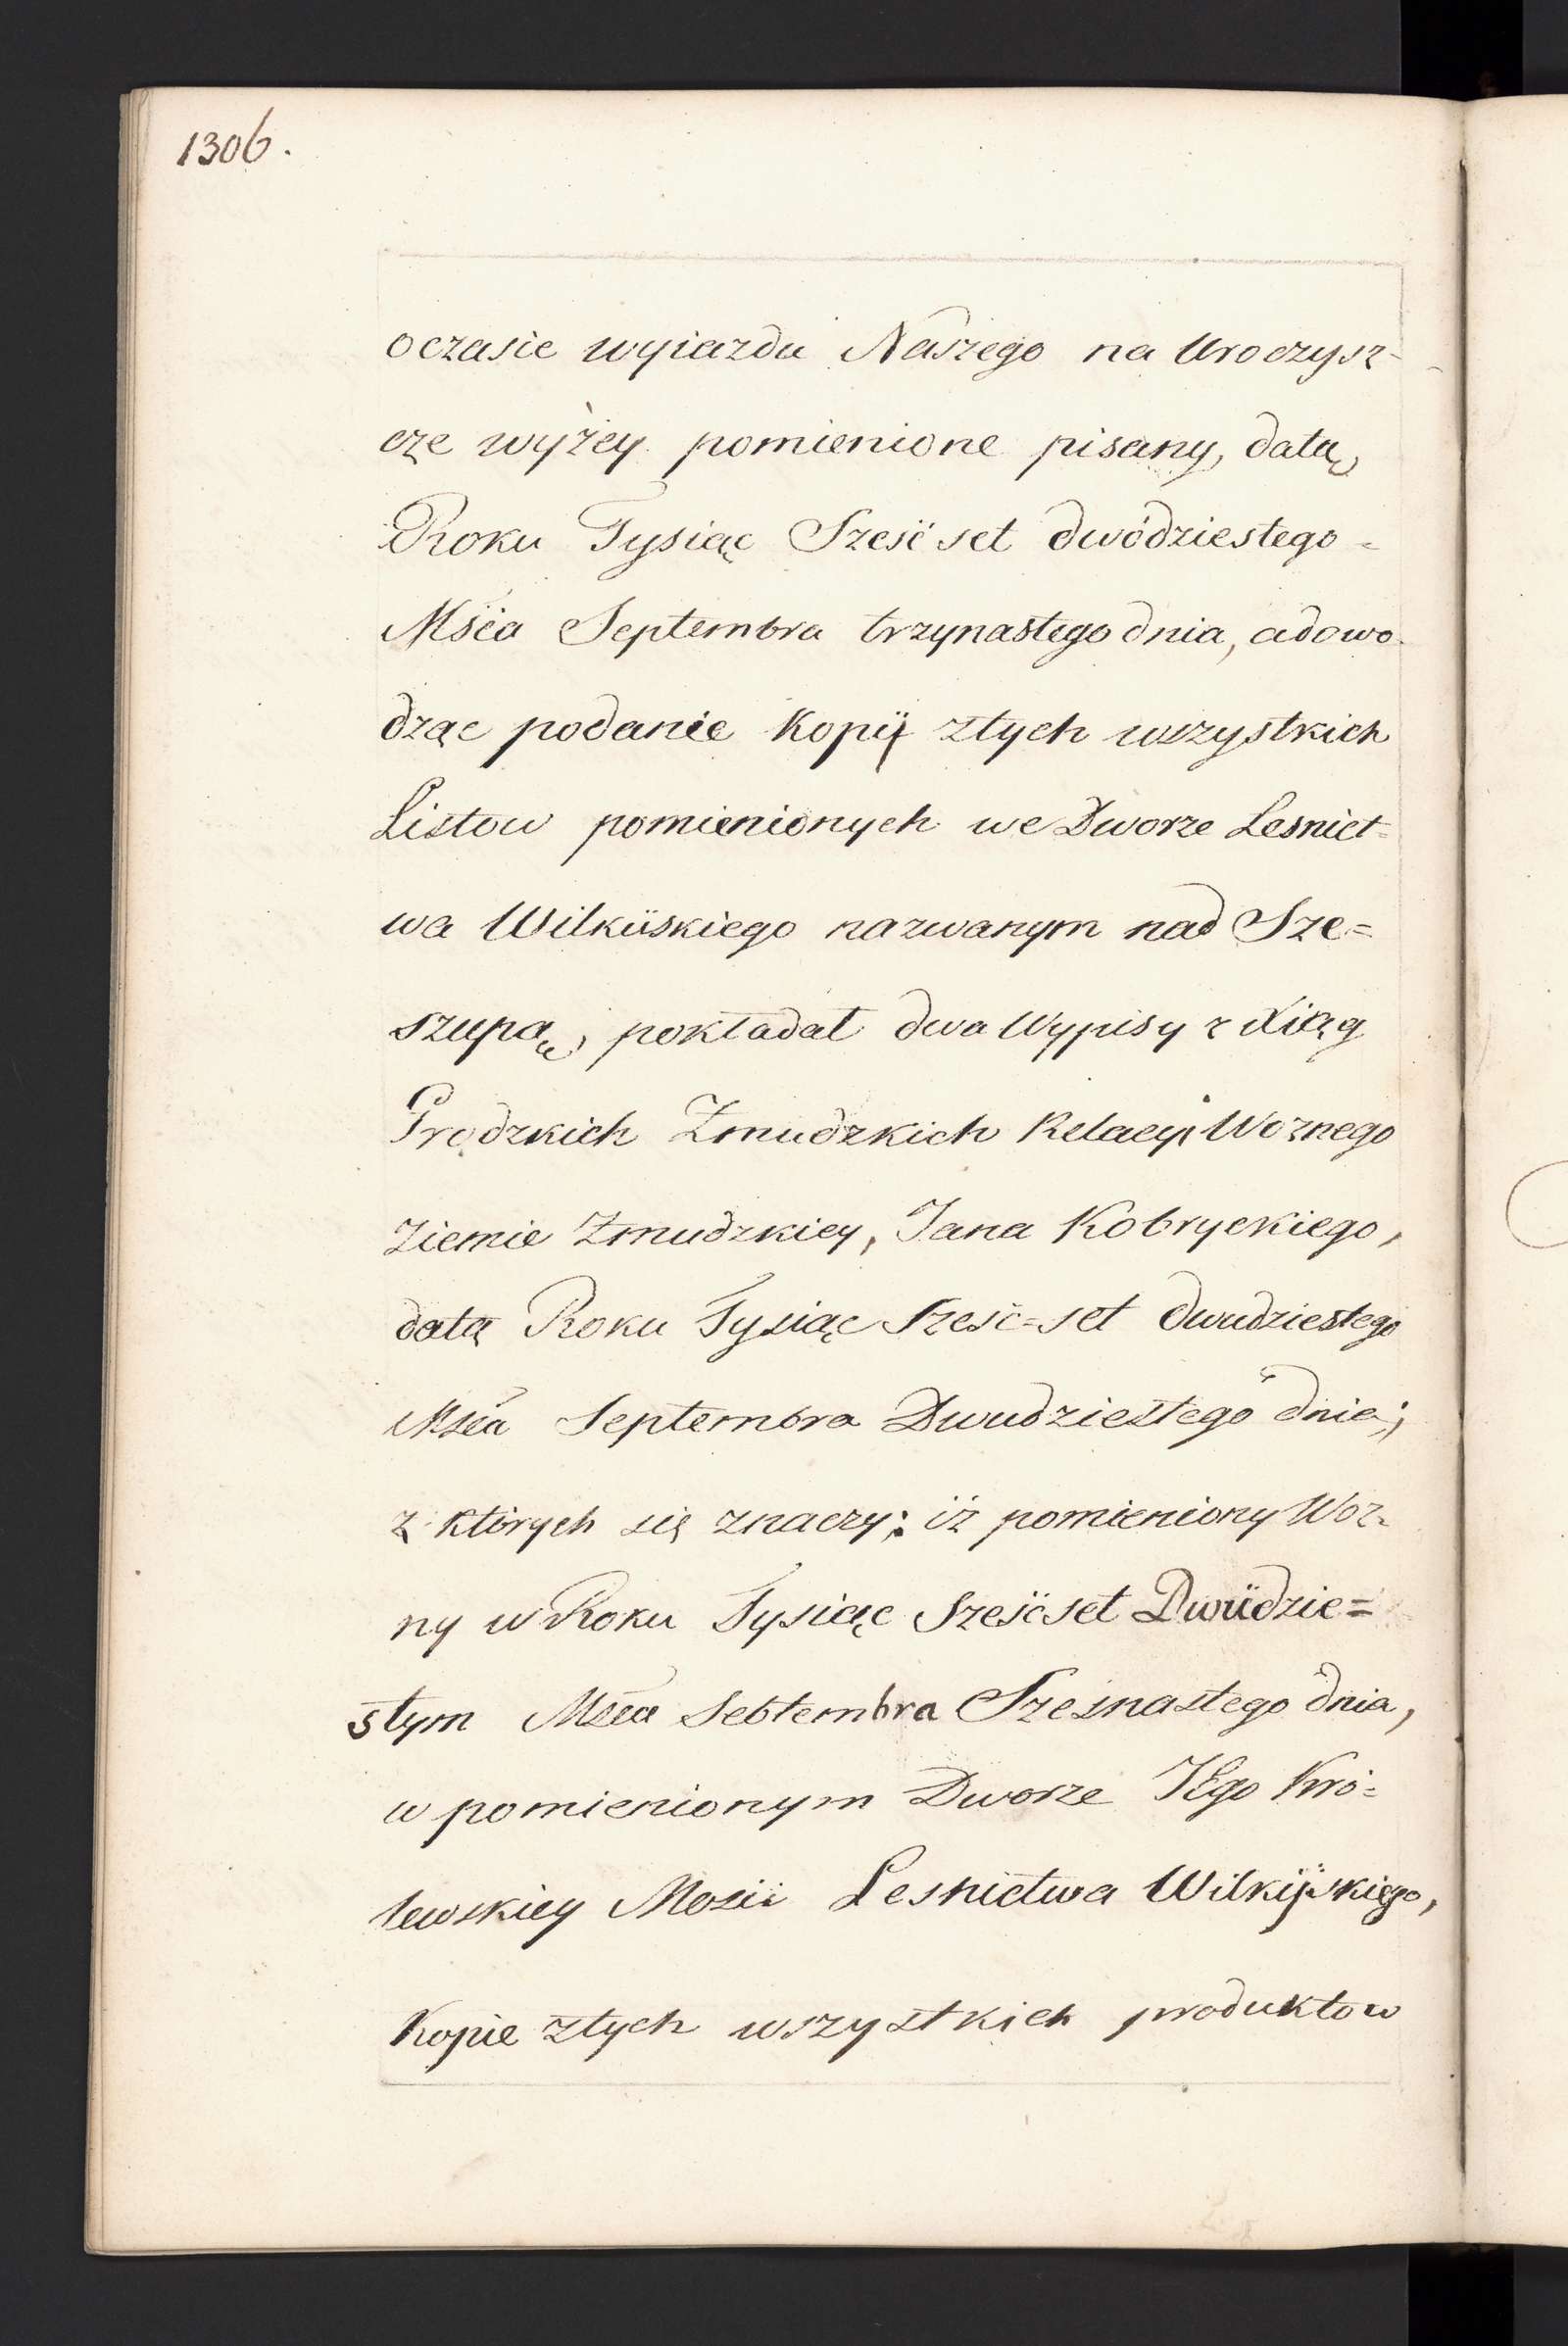 1306.
o czasie wyiazdu Naszego na Uroczysz-
cze wyżey pomienione pisany, datą,
Roku Tysiąc Sześć set dwódziestego =
Mśca Septembra trzynastego dnia, adowo-
dząc podanie Kopij ztych wszystkich
Listow pomienionych we Dworze Lesnict=
wa Wilkiiskiego nazwanym nad Sze=
szupą, pokładał dwa Wypisy z Xiąg
Grodzkich Żmudzkich Relacyi Woznego
Ziemie Żmudzkiey, Jana Kobryckiego,
datą Roku Tysiąc Sześć=set dwudziestego
Mśca Septembra Dwudziestego dnia;
z których się znaczy; iż pomieniony Woz-
ny w Roku Tysiąc Sześćset Dwudzie=
stym Mśca Sebtembra Szesnastego dnia,
w pomienionym Dworze JEgo Kró=
lewskiey Mosii Lesnictwa Wilkijskiego,
Kopie ztych wszystkich produktow